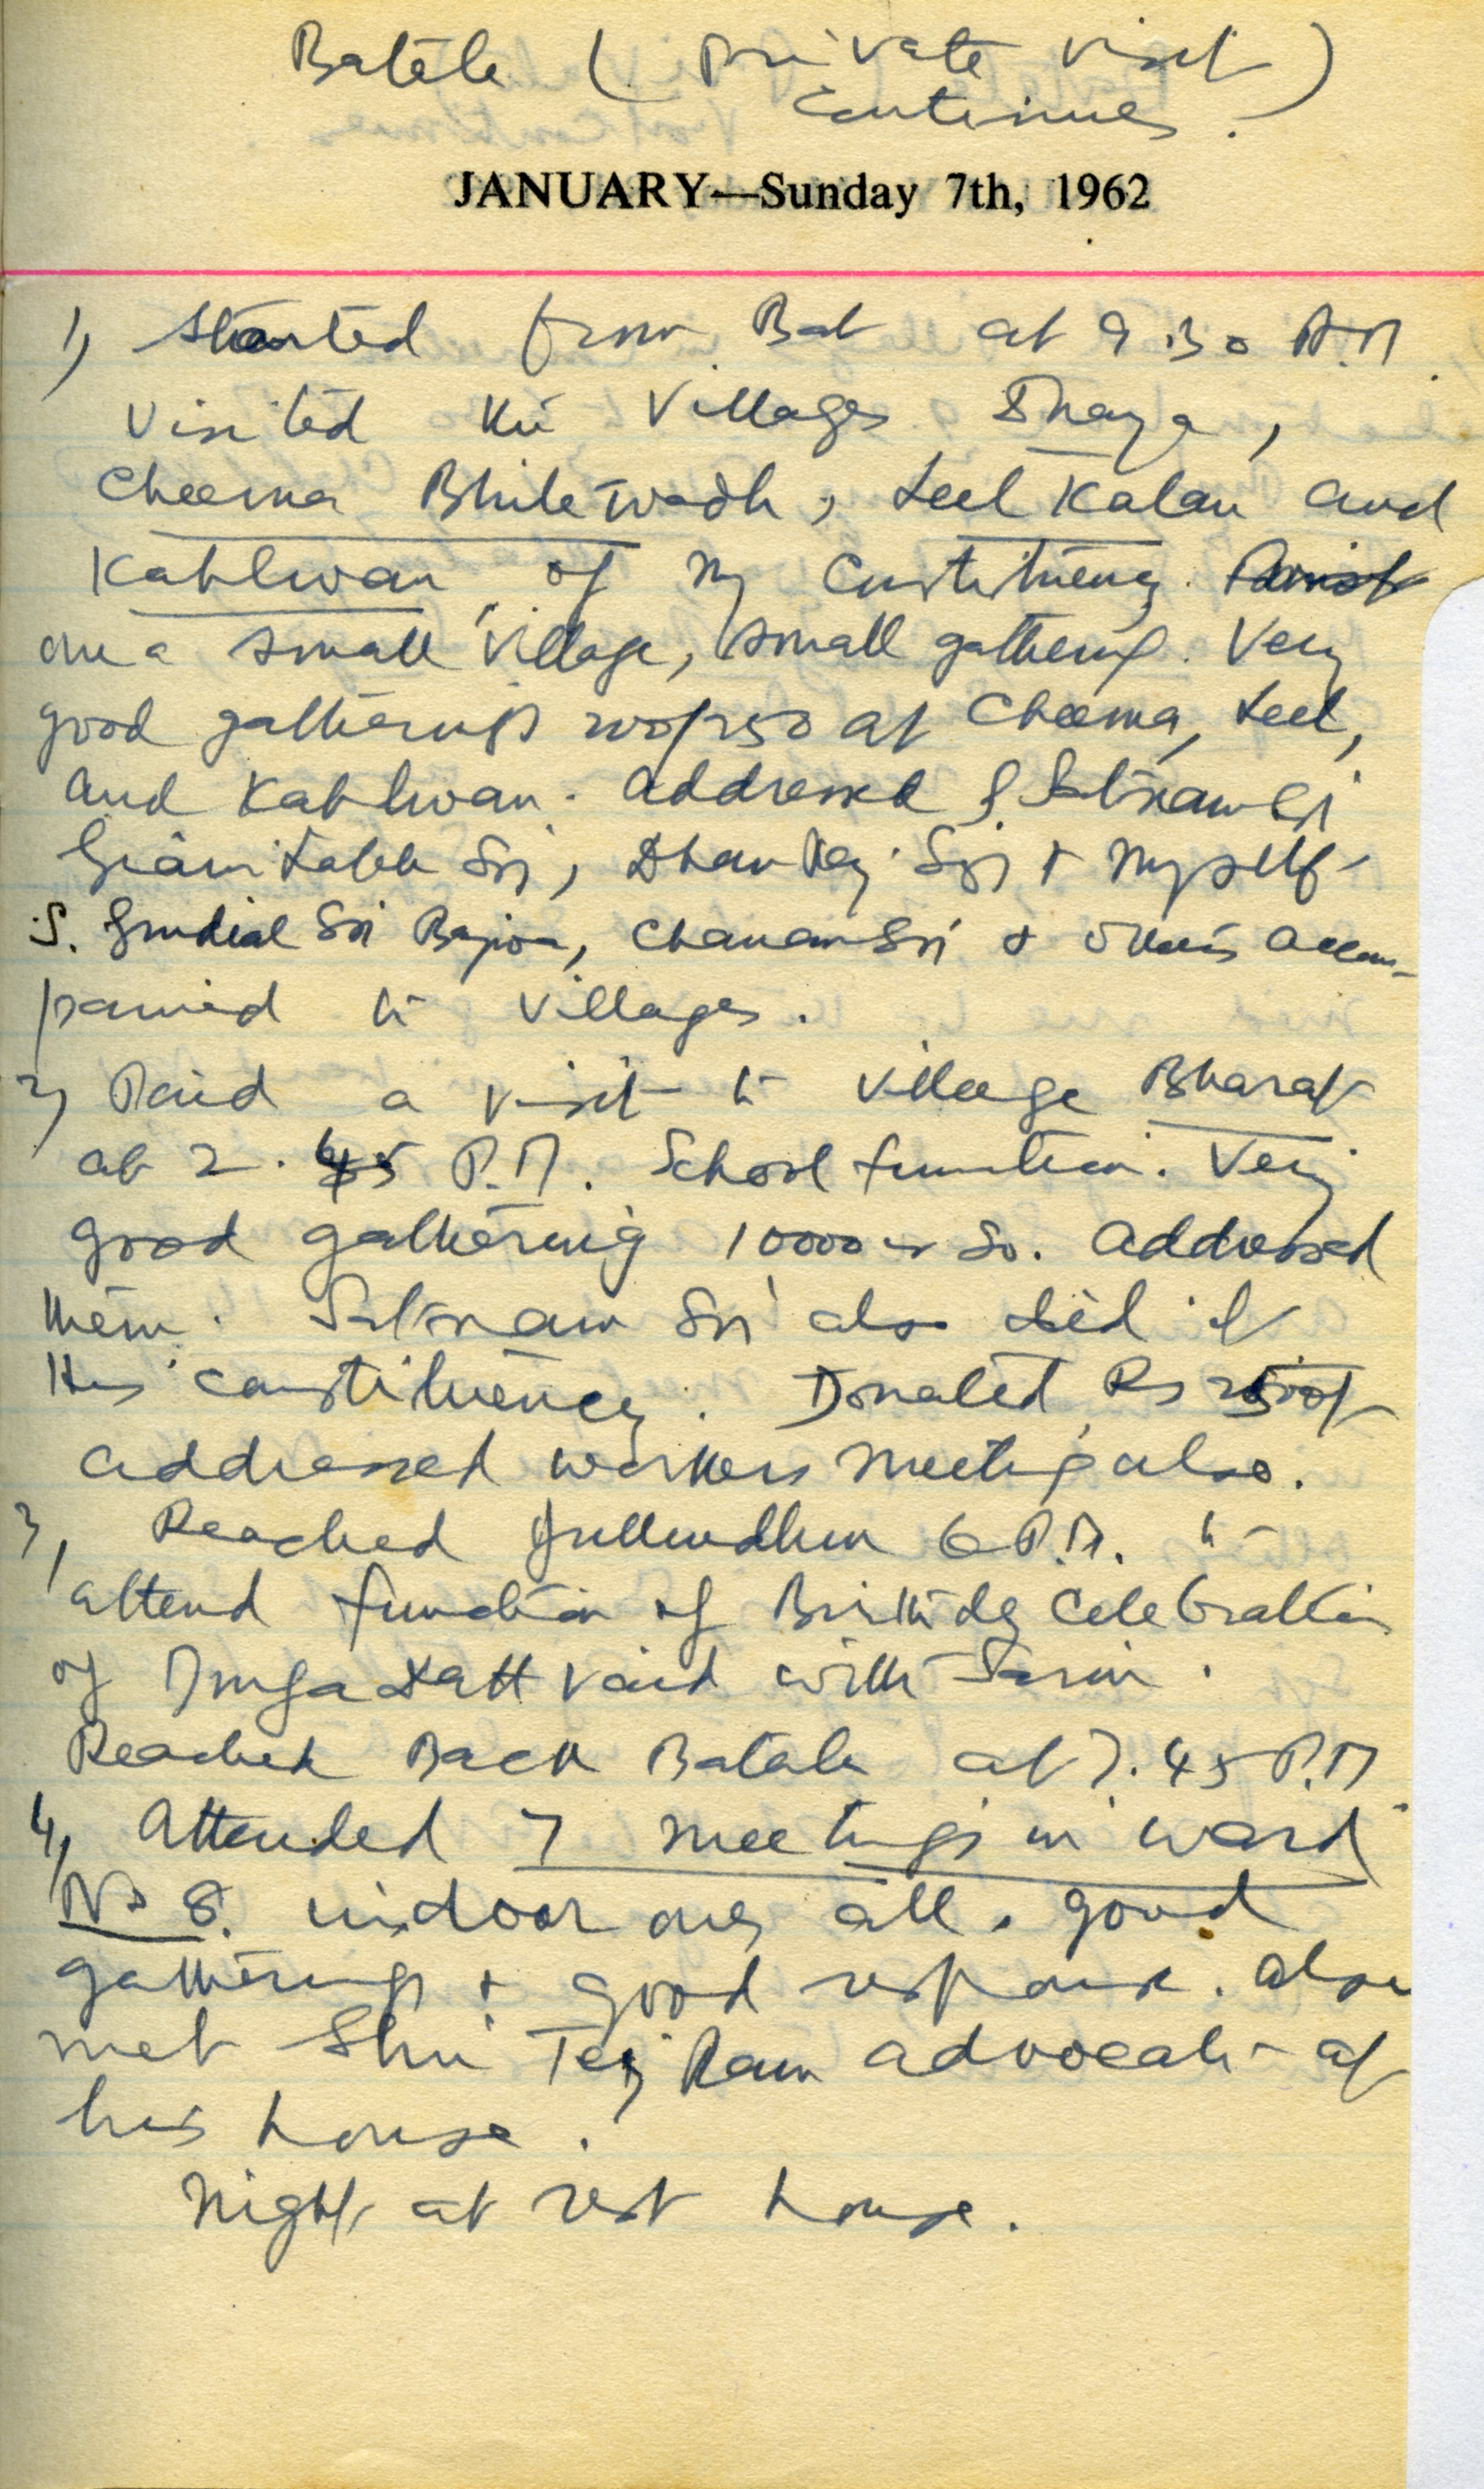 Batala ( private visit
continues. )
JANUARY—Sunday 7th, 1962
1) Started from Bat at 9.30 A.M.
Visited the Villages
Cheema , Leel Kalan and
Kahlwan of my Constituency.
one a small village, small gathering. Very
good gatherings at Cheema, Leel,
and Kahlwan. addressed S. Satnam Sg
Giani Labh Sg, & myself
S. Gurdial Sg Bajwa, Chanan Sg & others accom-
panied to villages.
2) Paid a visit to village Bharat
at 2.45 P.M. School function. Very
good gathering 10000 or so. addressed
them. Satnam Sg also did it
His constituency. Donated Rs
addressed workers meeting also.
3) Reached Jullundhur 6 P.M. to
attend function of Birthday Celebration
of Durga Datt Vaid with Sarin.
Reached Back Batala at 7.45 P.M
4) Attended 7 meetings in ward
No 8. indoor ones all. good
gatherings & good response. also
met Shri Tej Ram advocate at
his house.
Night at rest house.